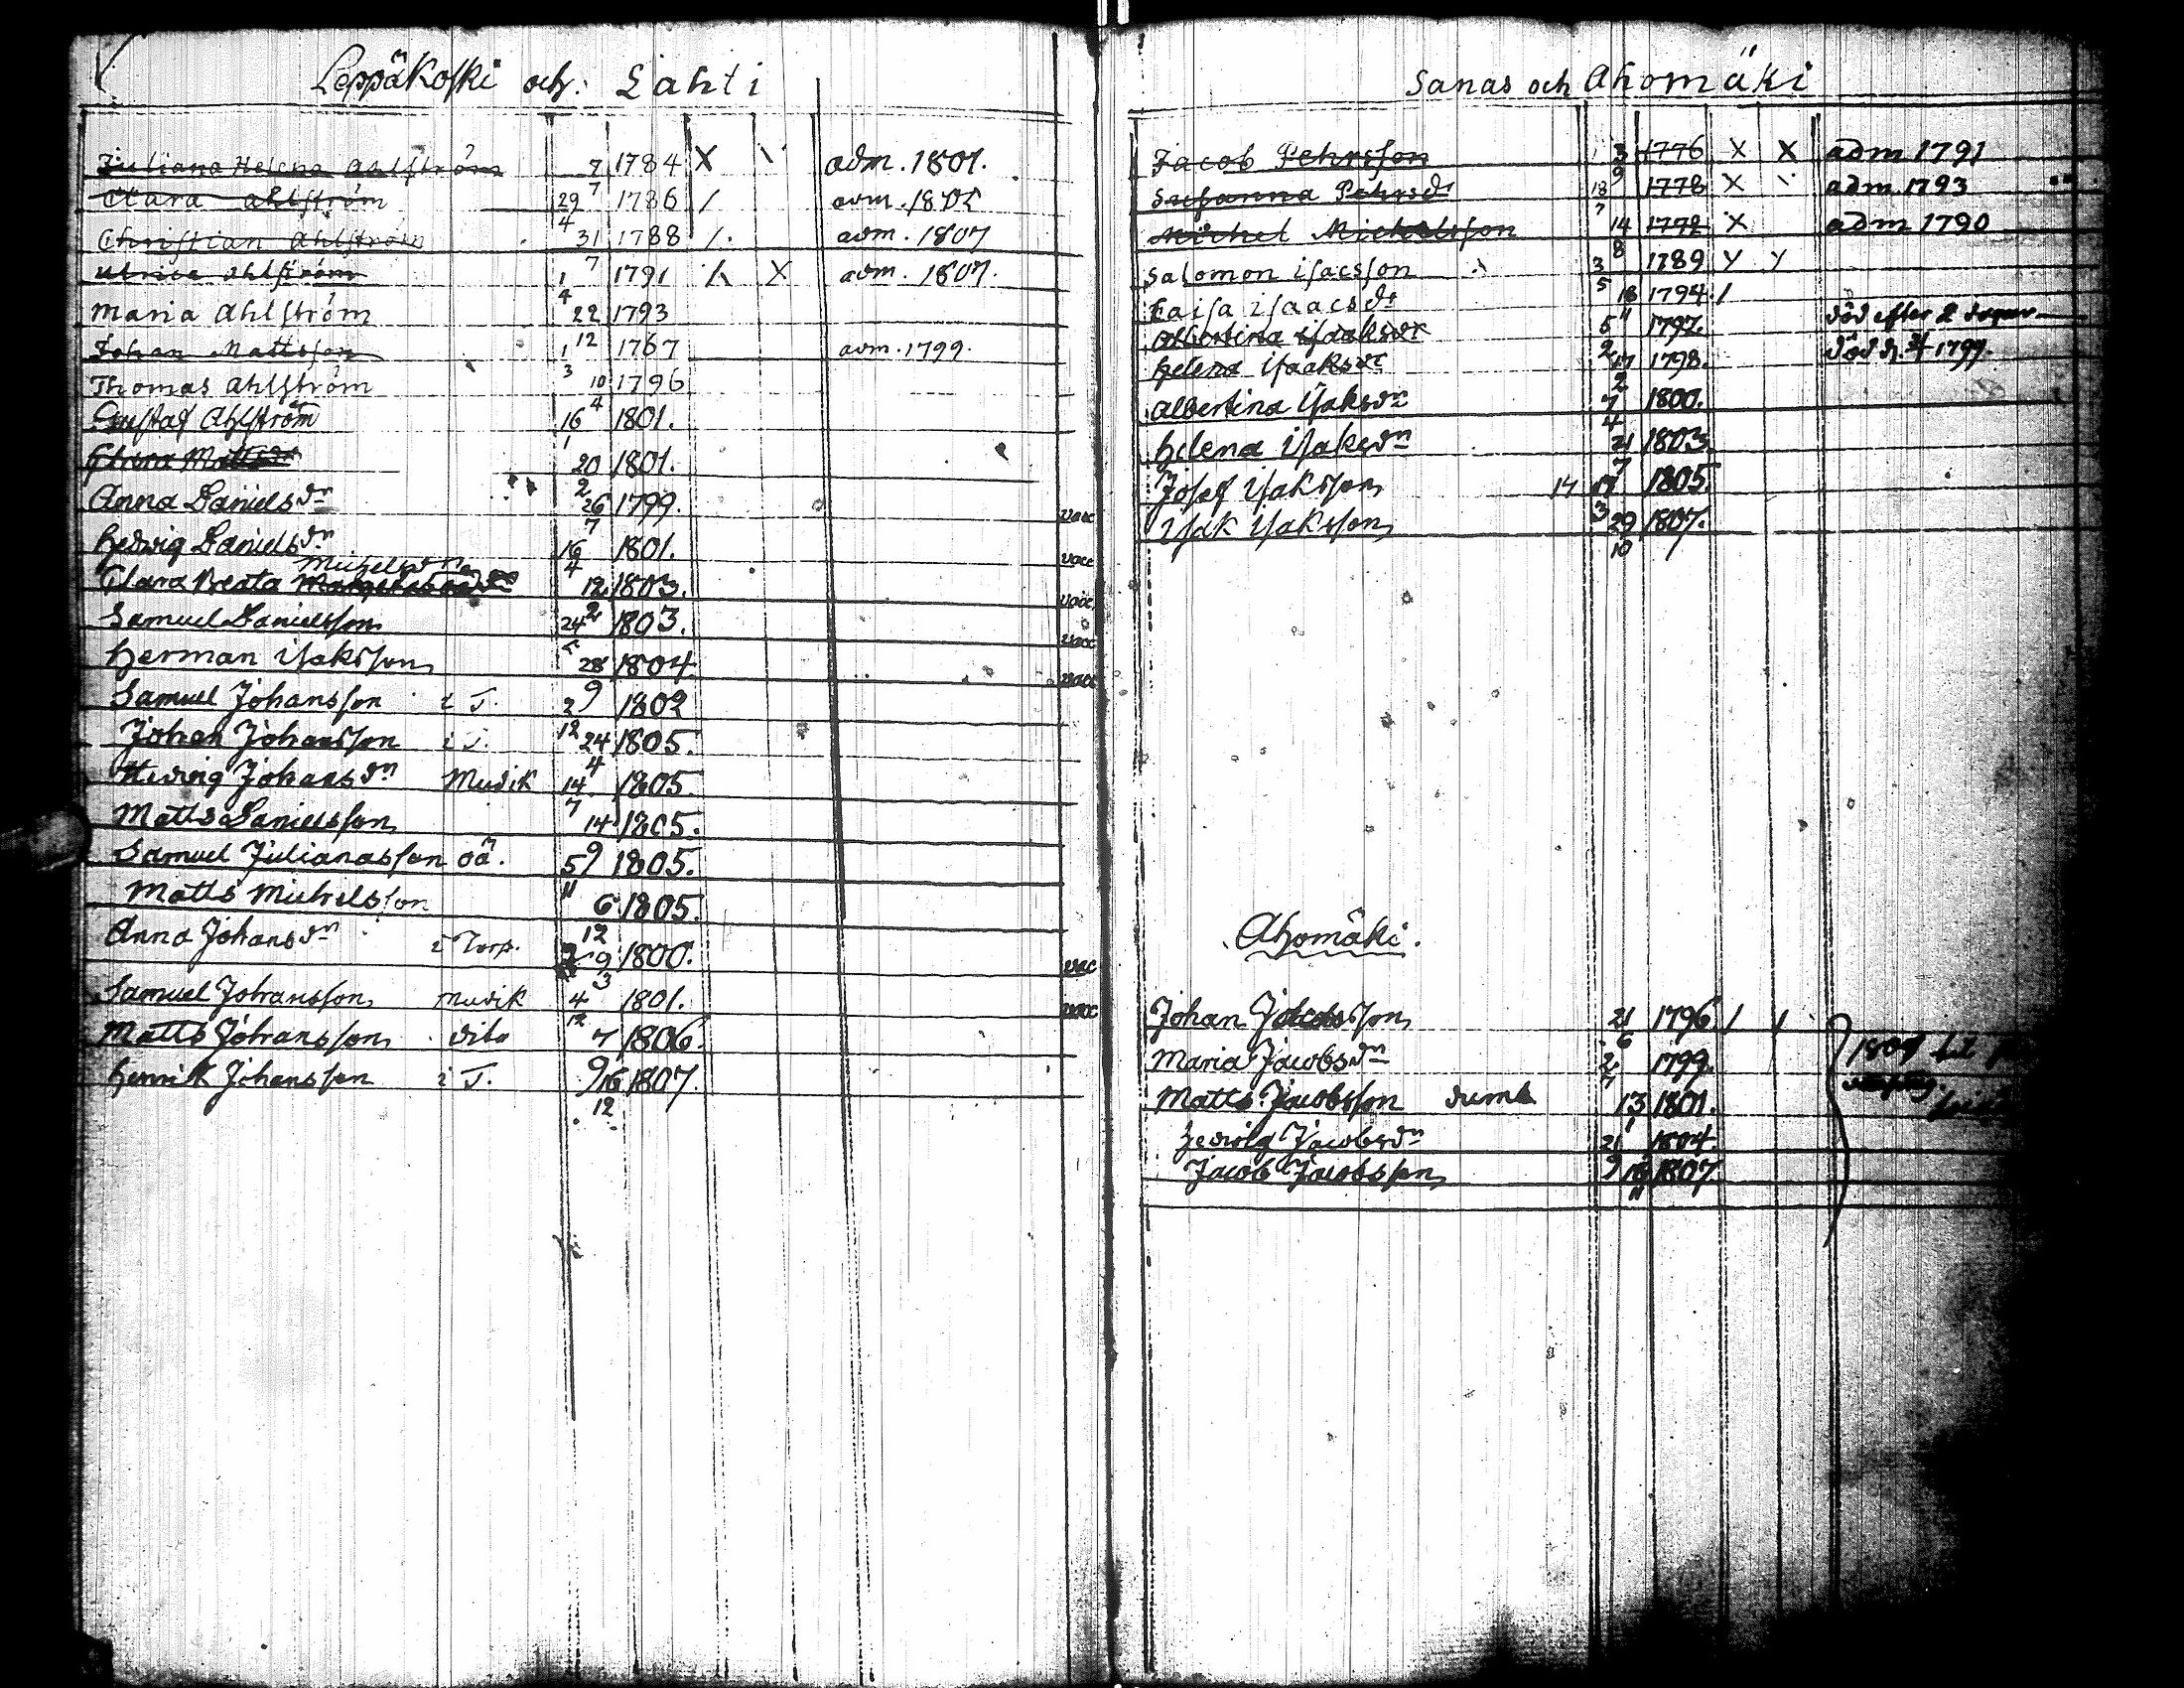 Leppäkoski och: Lahti
Juliana Helena Ahlström 7 1784 X \ adm. 1801.
Clara Ahlström 29 7 1786 / adm. 1802
Christian Ahlström 4 31 1788 /. adm. 1807
Ulrica Ahlström 1 7 1791 X X adm. 1807.
Maria Ahlström 4 22 1793
Johan Mattsson 1 12 1767 adm. 1799.
Thomas Ahlström 3 10 1796
Gustaf Ahlström 16 4 1801.
Mattsdr 1 20 1801.
Anna Danielsdn 2 26 1799. vacc
Hedvig Danielsdn 7 16 1801. vacc
Michelsdn
Clara Beata 4 12 1803. vacc
Samuel Danielsson 24 2 1803. vacc
Herman Isaksson 28 1804. vacc
Samuel Johansson i T. 2 9 1802
Johan Johansson i T. 12 24 1805.
Hedvig Johansdn Mudik 4 14 1805.
Matts Danielsson 7 14 1805.
Samuel Julianasson oä. 5 9 1805.
Matts Michelsson 11 6 1805.
Anna Johansdn i Torp. 12 9 1800. vac
Samuel Johansson mudik 3 4 1801. vacc
Matts Johansson dito 12 7 1806.
Henrik Johansson i T. 9 16 1807.
12
Sanas och Ahomäki
Jacob Pehrsson 3 1776 X X adm 1791
Susanna Pehrsdr 9 18 1778 X \ adm 1793
Michel Michelsson 7 14 1772 X adm 1790
Salomon Isacsson 8 3 1789 Y Y
Caisa Isaacsdr 5 18 1794. /
Albertina Isaaksdr 5 11 1797. död efter 2
Helena Isaaksdr 2 17 1798. död d. 1799.
Albertina Isaksdr 2 7 1800.
Helena Isaksdn 4 21 1803.
Josef Isaksson 14 7 17 1805.
Isak Isaksson 3 29 1807.
10
Ahomäki.
Johan Jacobsson 21 1796. / /
Maria Jacobsdn 6 2 1799. 1807 til
Matts Jacobsson dumb 7 13 1801.
Hedvig Jacobsdn 1 21 1804.
Jacob Jacobsson 9 18 1807.
11